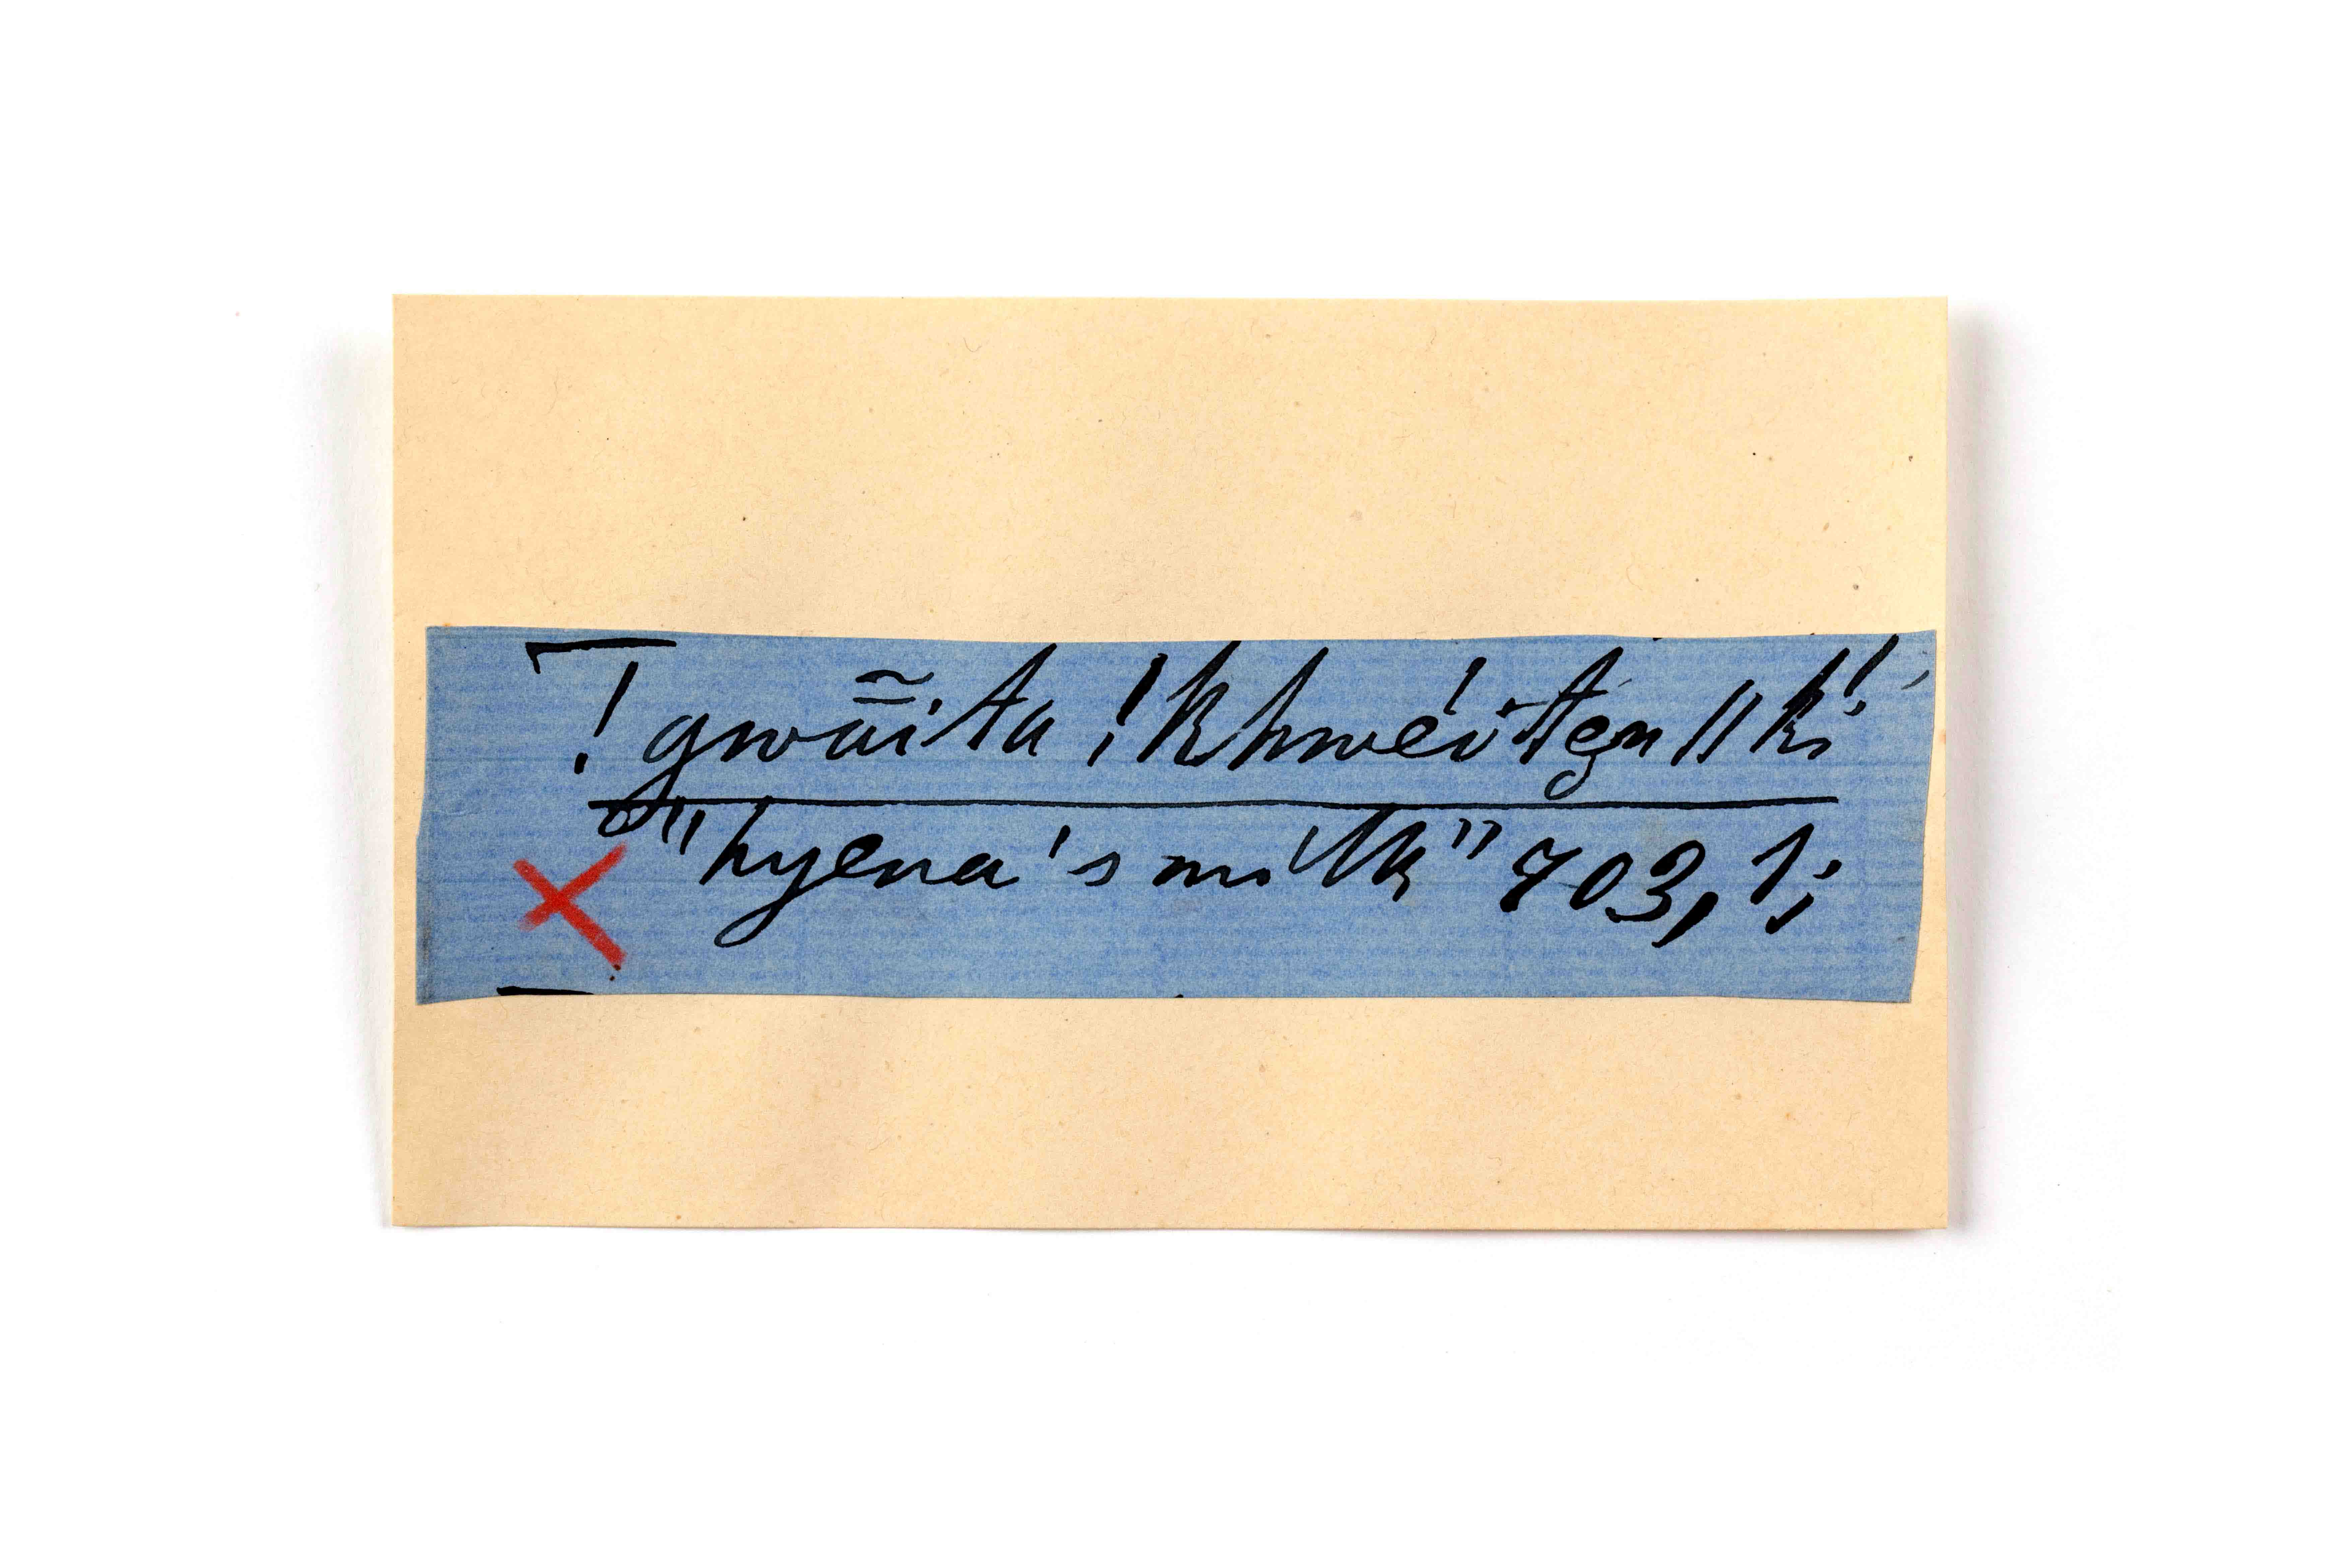 !gwā̃ita !khwéitən ǁki
"hyena's milk" 703, 1;